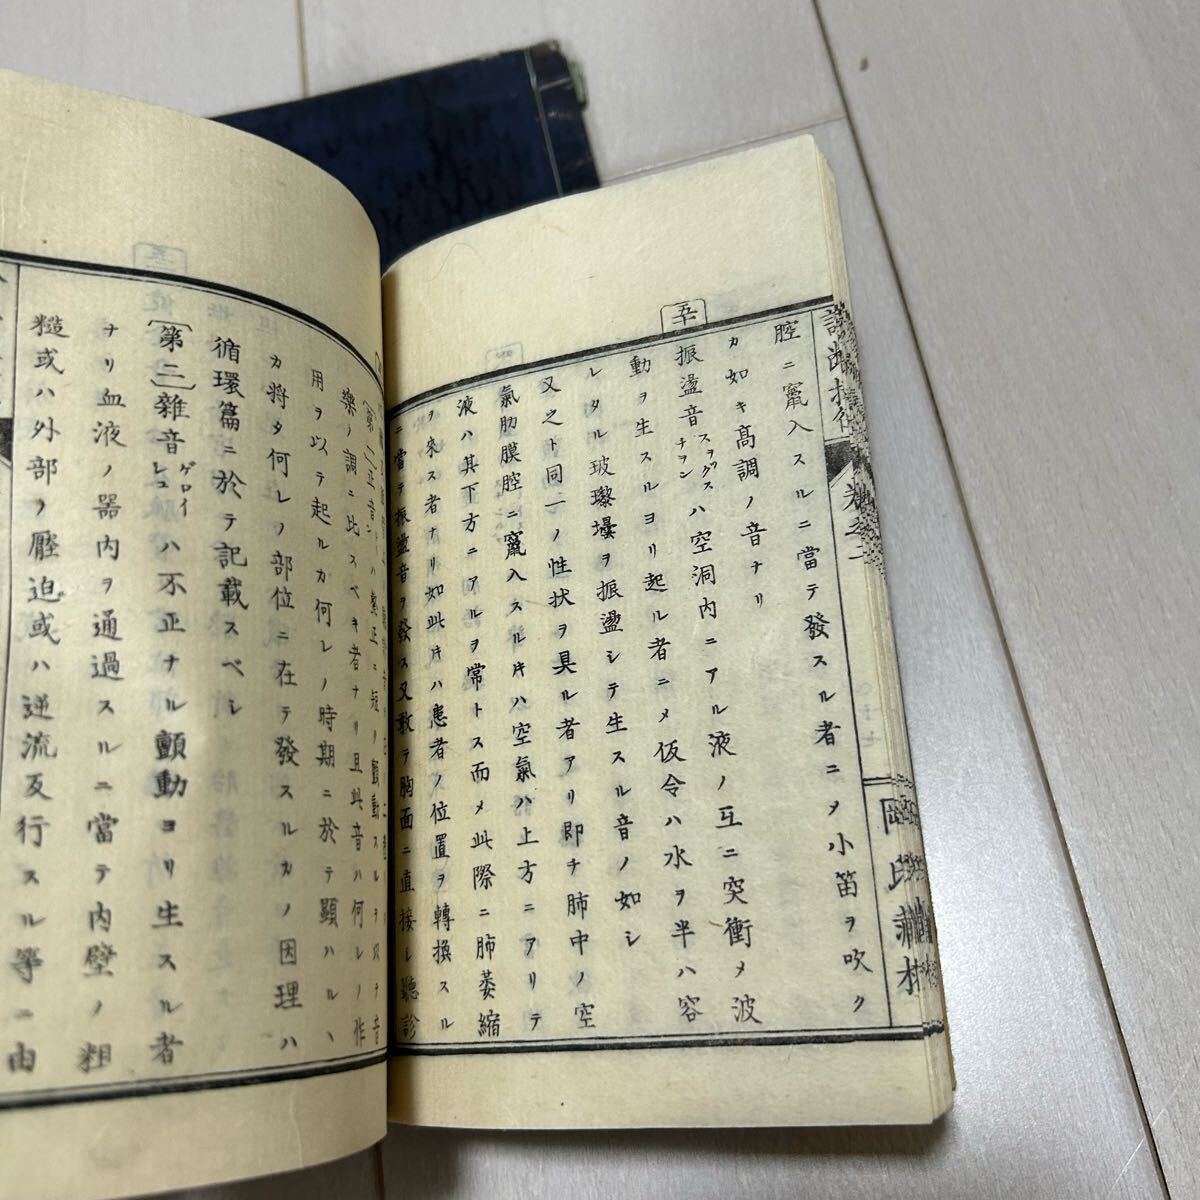 腔ニ竄入スルニ當テ發スル者ニメ小笛ヲ吹ク
カ如キ髙調ノ音ナリ
五
振盪音ハ空洞内ニアル液ノ互ニ突衝メ波
スヲックス
チヲン
動ヲ生スルヨリ起ル者ニメ仮令ハ水ヲ半ハ容
レタル玻瓈壜ヲ振盪シテ生スル音ノ如シ
又之ト同一ノ性状ヲ具ル者アリ即チ肺中ノ空
氣肋膜腔ニ竄入スル𪜈ハ空氣ハ上方ニアリテ
液ハ其下方ニアルヲ常トス而メ此際ニ肺萎縮
ヲ來ス者ナリ如此𪜈ハ患者ノ位置ヲ轉換スル
ニ當テ振盪音ヲ發ス又敢テ胸面ニ直接シ聽診
樂ノ調ニ比スベキ者ナリ且此音ハ何レノ作
用ヲ以テ起ルカ何レノ時期ニ於テ顯ハルヽ
カ將タ何レノ部位ニ在テ發スルカノ因理ハ
循環篇ニ於テ記載スベシ
〔第二〕雜音ハ不正ナル顫動ヨリ生スル者
ゲロイ
ナリ血液ノ器内ヲ通過スルニ當テ内壁ノ粗
糙或ハ外部ヲ壓迫或ハ逆流反行スル等ニ由